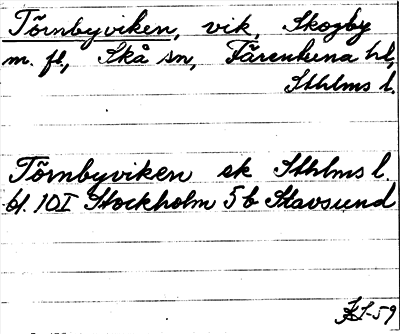 Törnbyviken, vik, Skogby
m. fl., Skå sn, Färentuna hd,
Sthlms l.
Törnbyviken ek Sthlms l.
bl. 10I Stockholm 5b Stavsund